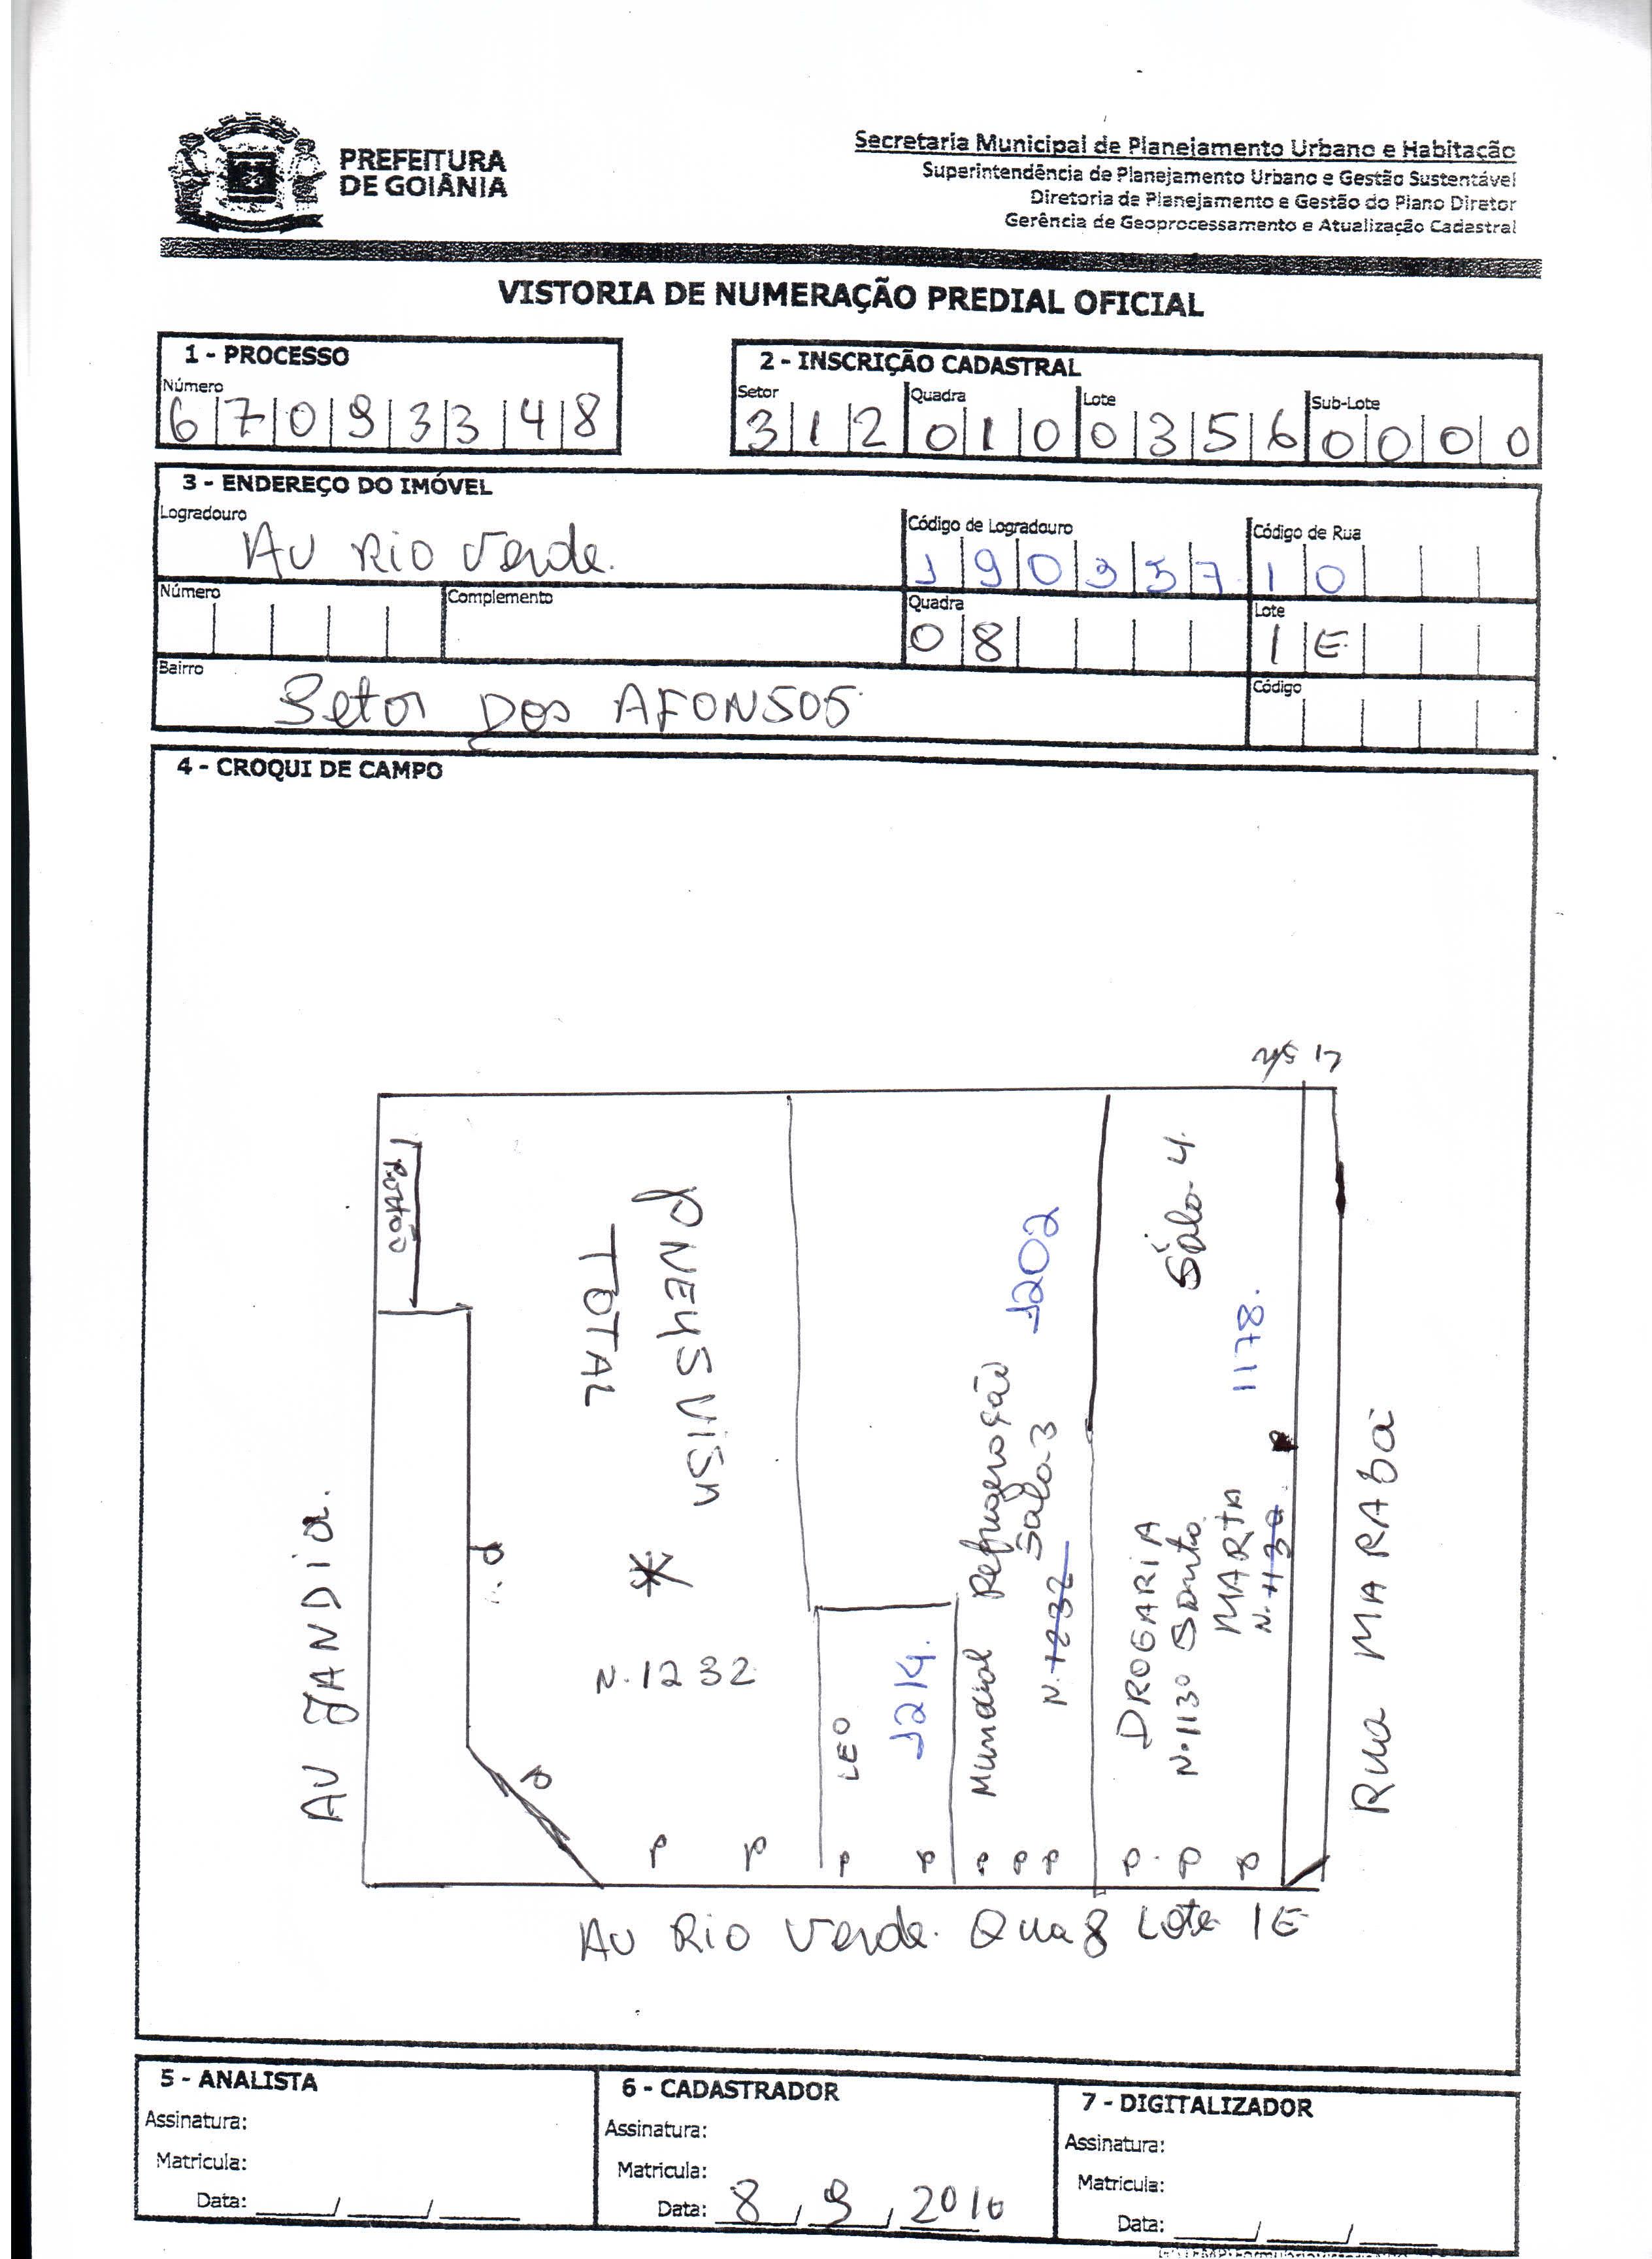 PREFEITURA
DE GOIÂNIA
Secretaria Municipal de Planejamento Urbano e Habitação
Superintendência de Planejamento Urbano e Gestão Sustentável
Diretoria de Planejamento e Gestão do Plano Diretor
Gerência de Geoprocessamento e Atualização Cadastral
VISTORIA DE NUMERAÇÃO PREDIAL OFICIAL
1 - PROCESSO
Número
6 7 0 9 3 3 4 8
2 - INSCRIÇÃO CADASTRAL
Setor Quadra Lote Sub-Lote
3 1 2 0 1 0 0 3 5 6 0 0 0 0
3 - ENDEREÇO DO IMÓVEL
Logradouro
Av Rio Verde.
Código de Logradouro
1 9 0 3 5 7
Código de Rua
1 0
Número
Complemento
Quadra
0 8
Lote
1 E
Bairro
Setor Dos AFONSOS
Código
4 - CROQUI DE CAMPO
Portão
PNEUS VISA
TOTAL
N. 1232
LEO
1214.
Mundial Refrigeração
Sala-3
N. 1232
1202
Sala-4.
DROGARIA
N. 1130 Santa
MARTA
N. 1130.
1178.
Av JANDIA.
Rua MARABÁ
P P P P P P P P P P
Av Rio Verde. Qua 8 Lote 1E
5 - ANALISTA
Assinatura:
Matricula:
Data: ____/____/____
6 - CADASTRADOR
Assinatura:
Matricula:
Data: 8 / 9 / 2016
7 - DIGITALIZADOR
Assinatura:
Matricula:
Data: ____/____/____